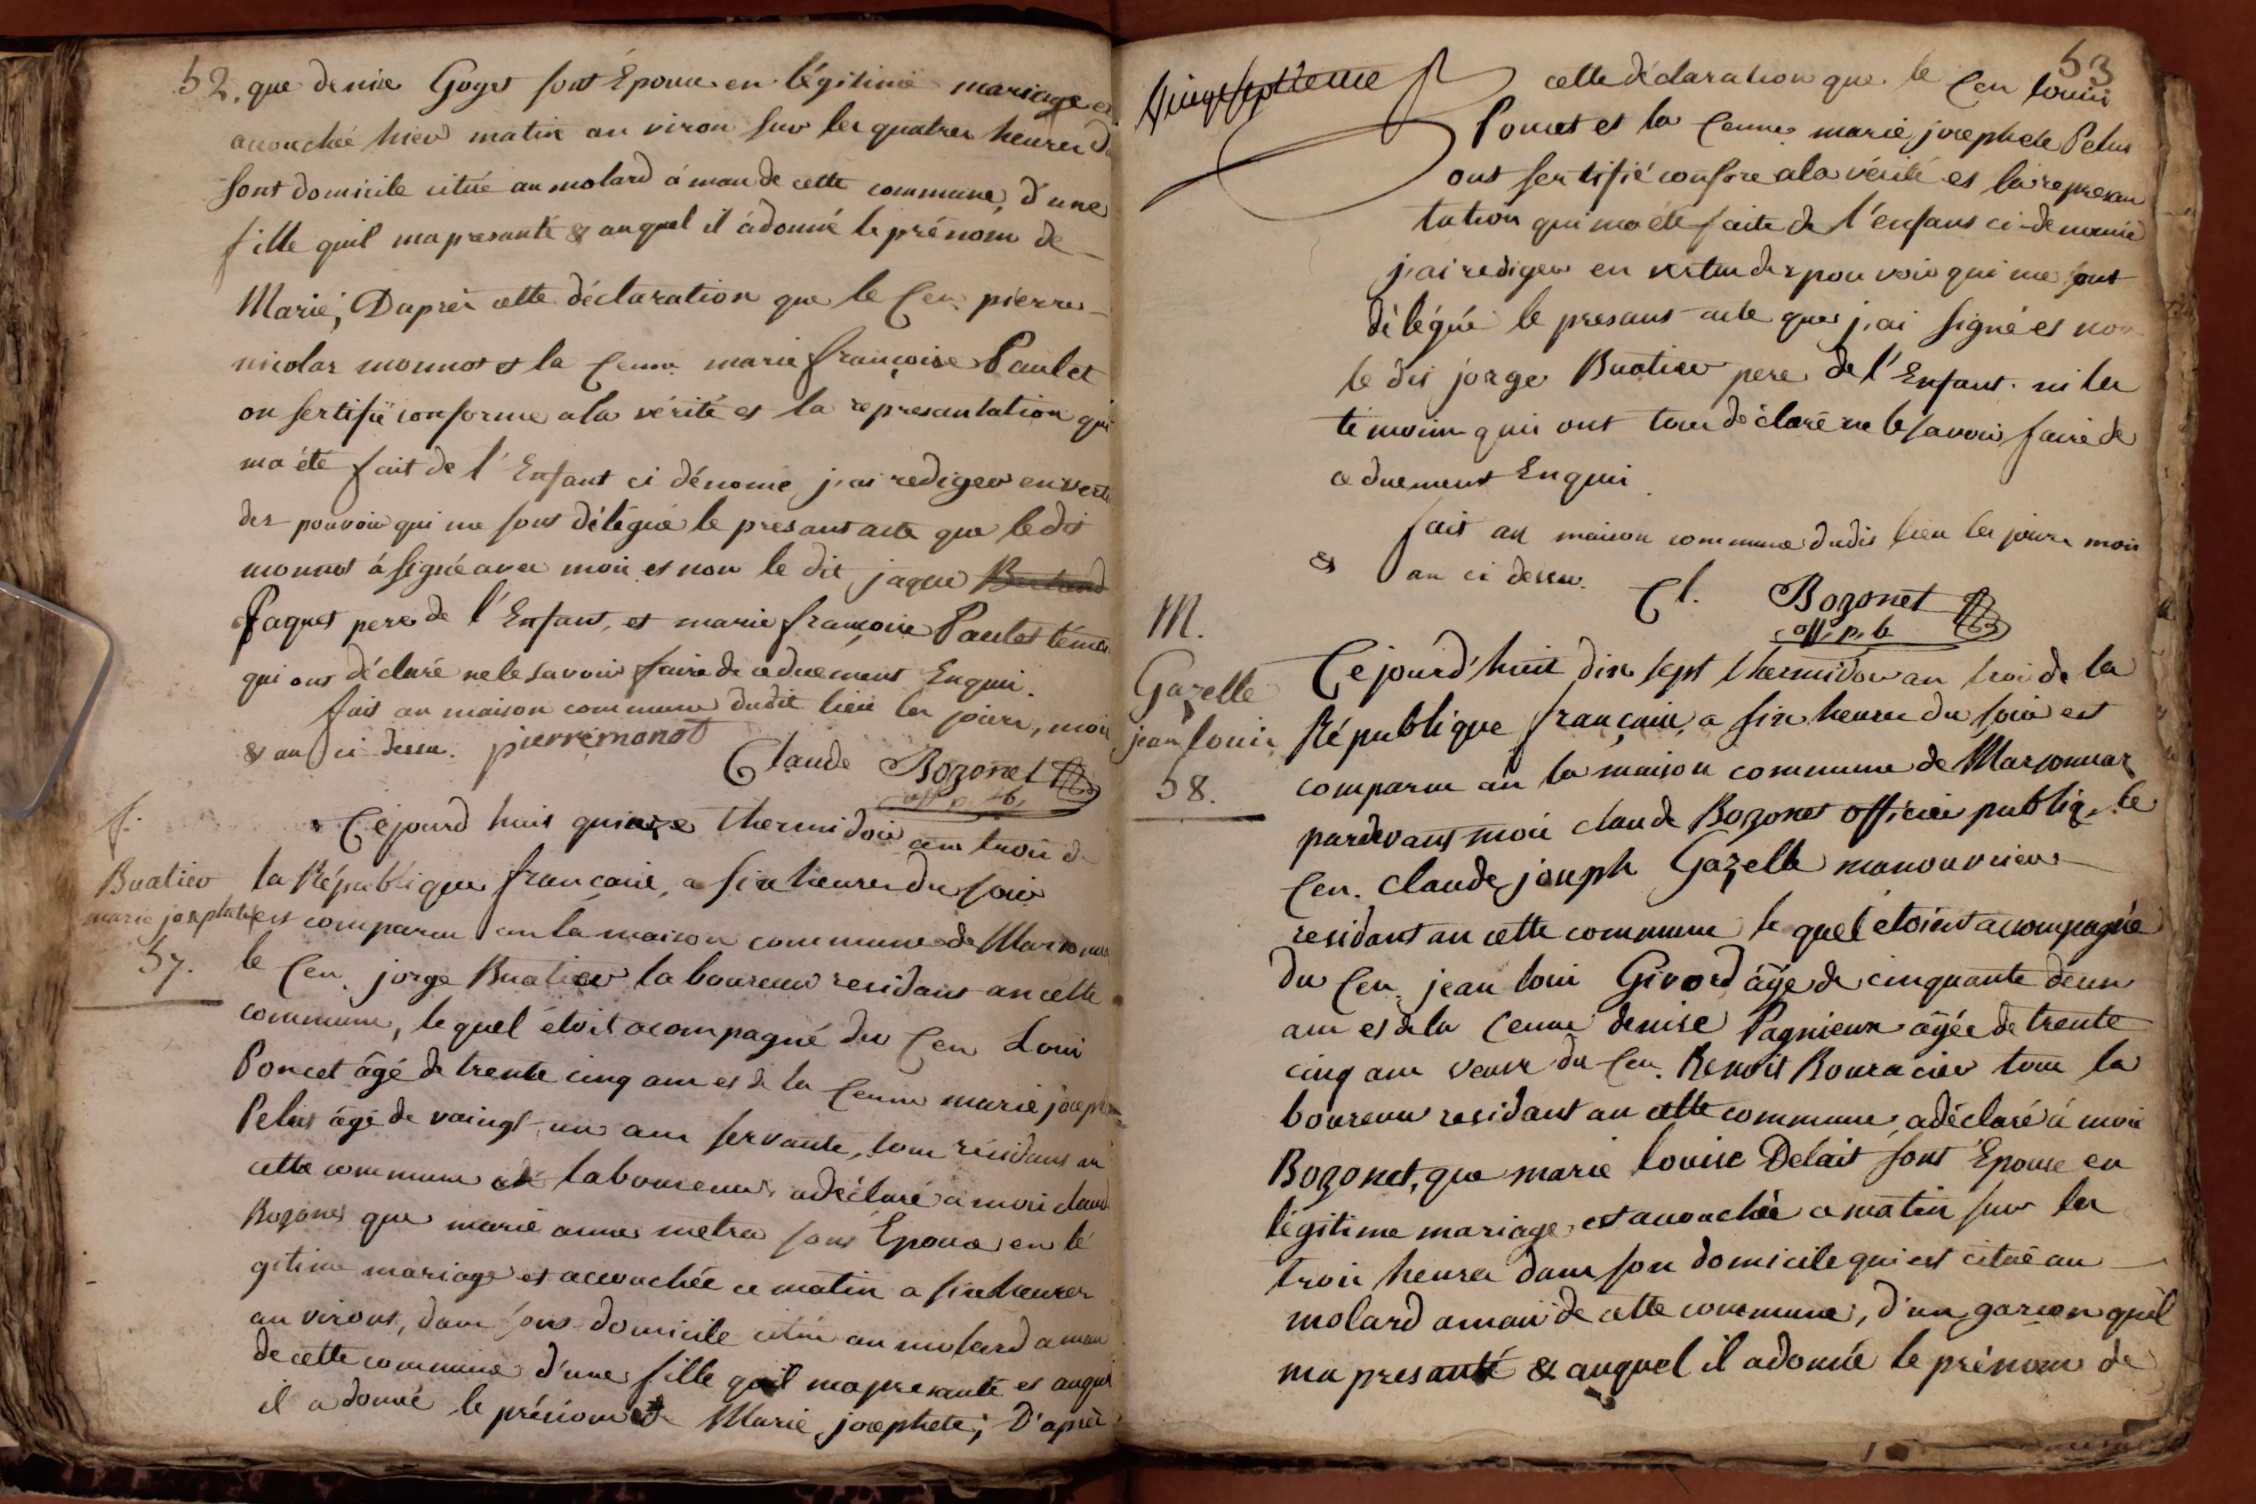 52. que denise Goyet sont Épouse en légitime mariage es
accouchée hier matin an viron sur les quatres heures d
sont domicile citué au molard á man de cette commune, d'une
fille quil ma presanté & auquel il á donné le prénom de
Marie; Daprès cette déclaration que le Cen pierre
nicolas monnot et la Cenne marie françoise Paulet
on sertifié conforme a la vérité es la represantation qui
ma été fait de l'Enfant ci dénomé j'ai rediger en vertu
des pouvoir qui me sont délégué le presant acte que le dit
monnot á signé avec moi es non le dit jaque
Paquet pere de l'Enfant, et marie françoise Paulet témoi
qui ont déclaré ne le savoir faire de ce duement Enqui.
fait an maison commune dudit lieu les jour, moi
& an ci dessu. pierre monot
Claude Bozonet
off. p. b.
f.
Buatier
marie josephete
57.
Cejourd huit quinze thermidor an trois de
la République françoise, a six heures du soir
est comparu an la maison commune de Marsonnas
le Cen. jorge Buatier laboureur residant an cette
commune, lequel étoit acompagné du Cen Loui
Poncet âgé de trente cinq ans es de la Cenne marie joseph
Pelus âgé de vaingt un ans servante, tous résidans an
cette commune laboureur, a déclaré a moi claude
Bozonet que marie anne metra sont Épouse en lé
gitime mariage es accouchée ce matin a six heures
an virons, dans sont domicile citué au molard a man
de cette commune d'une fille quil ma presanté es auquel
il a donné le prénom de Marie josephete; D'après
53
Vingt septieme
cette déclaration que le Cen louis
Poncet et la Cenne marie josephete Pelus
ont sertifié confore a la vérité es la represan
tation qui ma été faite de l'enfans ci-denomé
j'ai rediger en vertu des pouvoir qui me sont
délégué le presans acte que j'ai signé es non
le dit jorge Buatier pere de l'Enfant. ni les
témoins qui ont tous déclaré ne le savoir faire de
ce duement Enqui
fait an maison commune dudit lieu les jours mois
& an ci dessu. Cl. Bozonet
off. p. b
M.
Gazelle
jean louis
58.
Cejourd'huit dix sept thermidor an trois de la
République françoise, a six heures du soir est
comparu an la maison commune de Marsonnas
pardevant moi claude Bozonet officier publiq, le
Cen. Claude joseph Gazelle manouvrier
residant an cette commune le quel étoint acompagné
du Cen. jean loui Givord âgé de cinquante deux
ans es de la Cenne denise Pagnieux âgée de trente
cinq ans veuve du Cen. Benoit Bouracier tous la
boureur residant an cette commune, a déclaré á moi
Bozonet, que marie louise Delait sont Epouse en
légitime mariage, est accouchée ce matin sur les
trois heures dans son domicile qui est citué au
molard a man de cette commune, d'un garson quil
ma presanté & auquel il a donné le prénom de